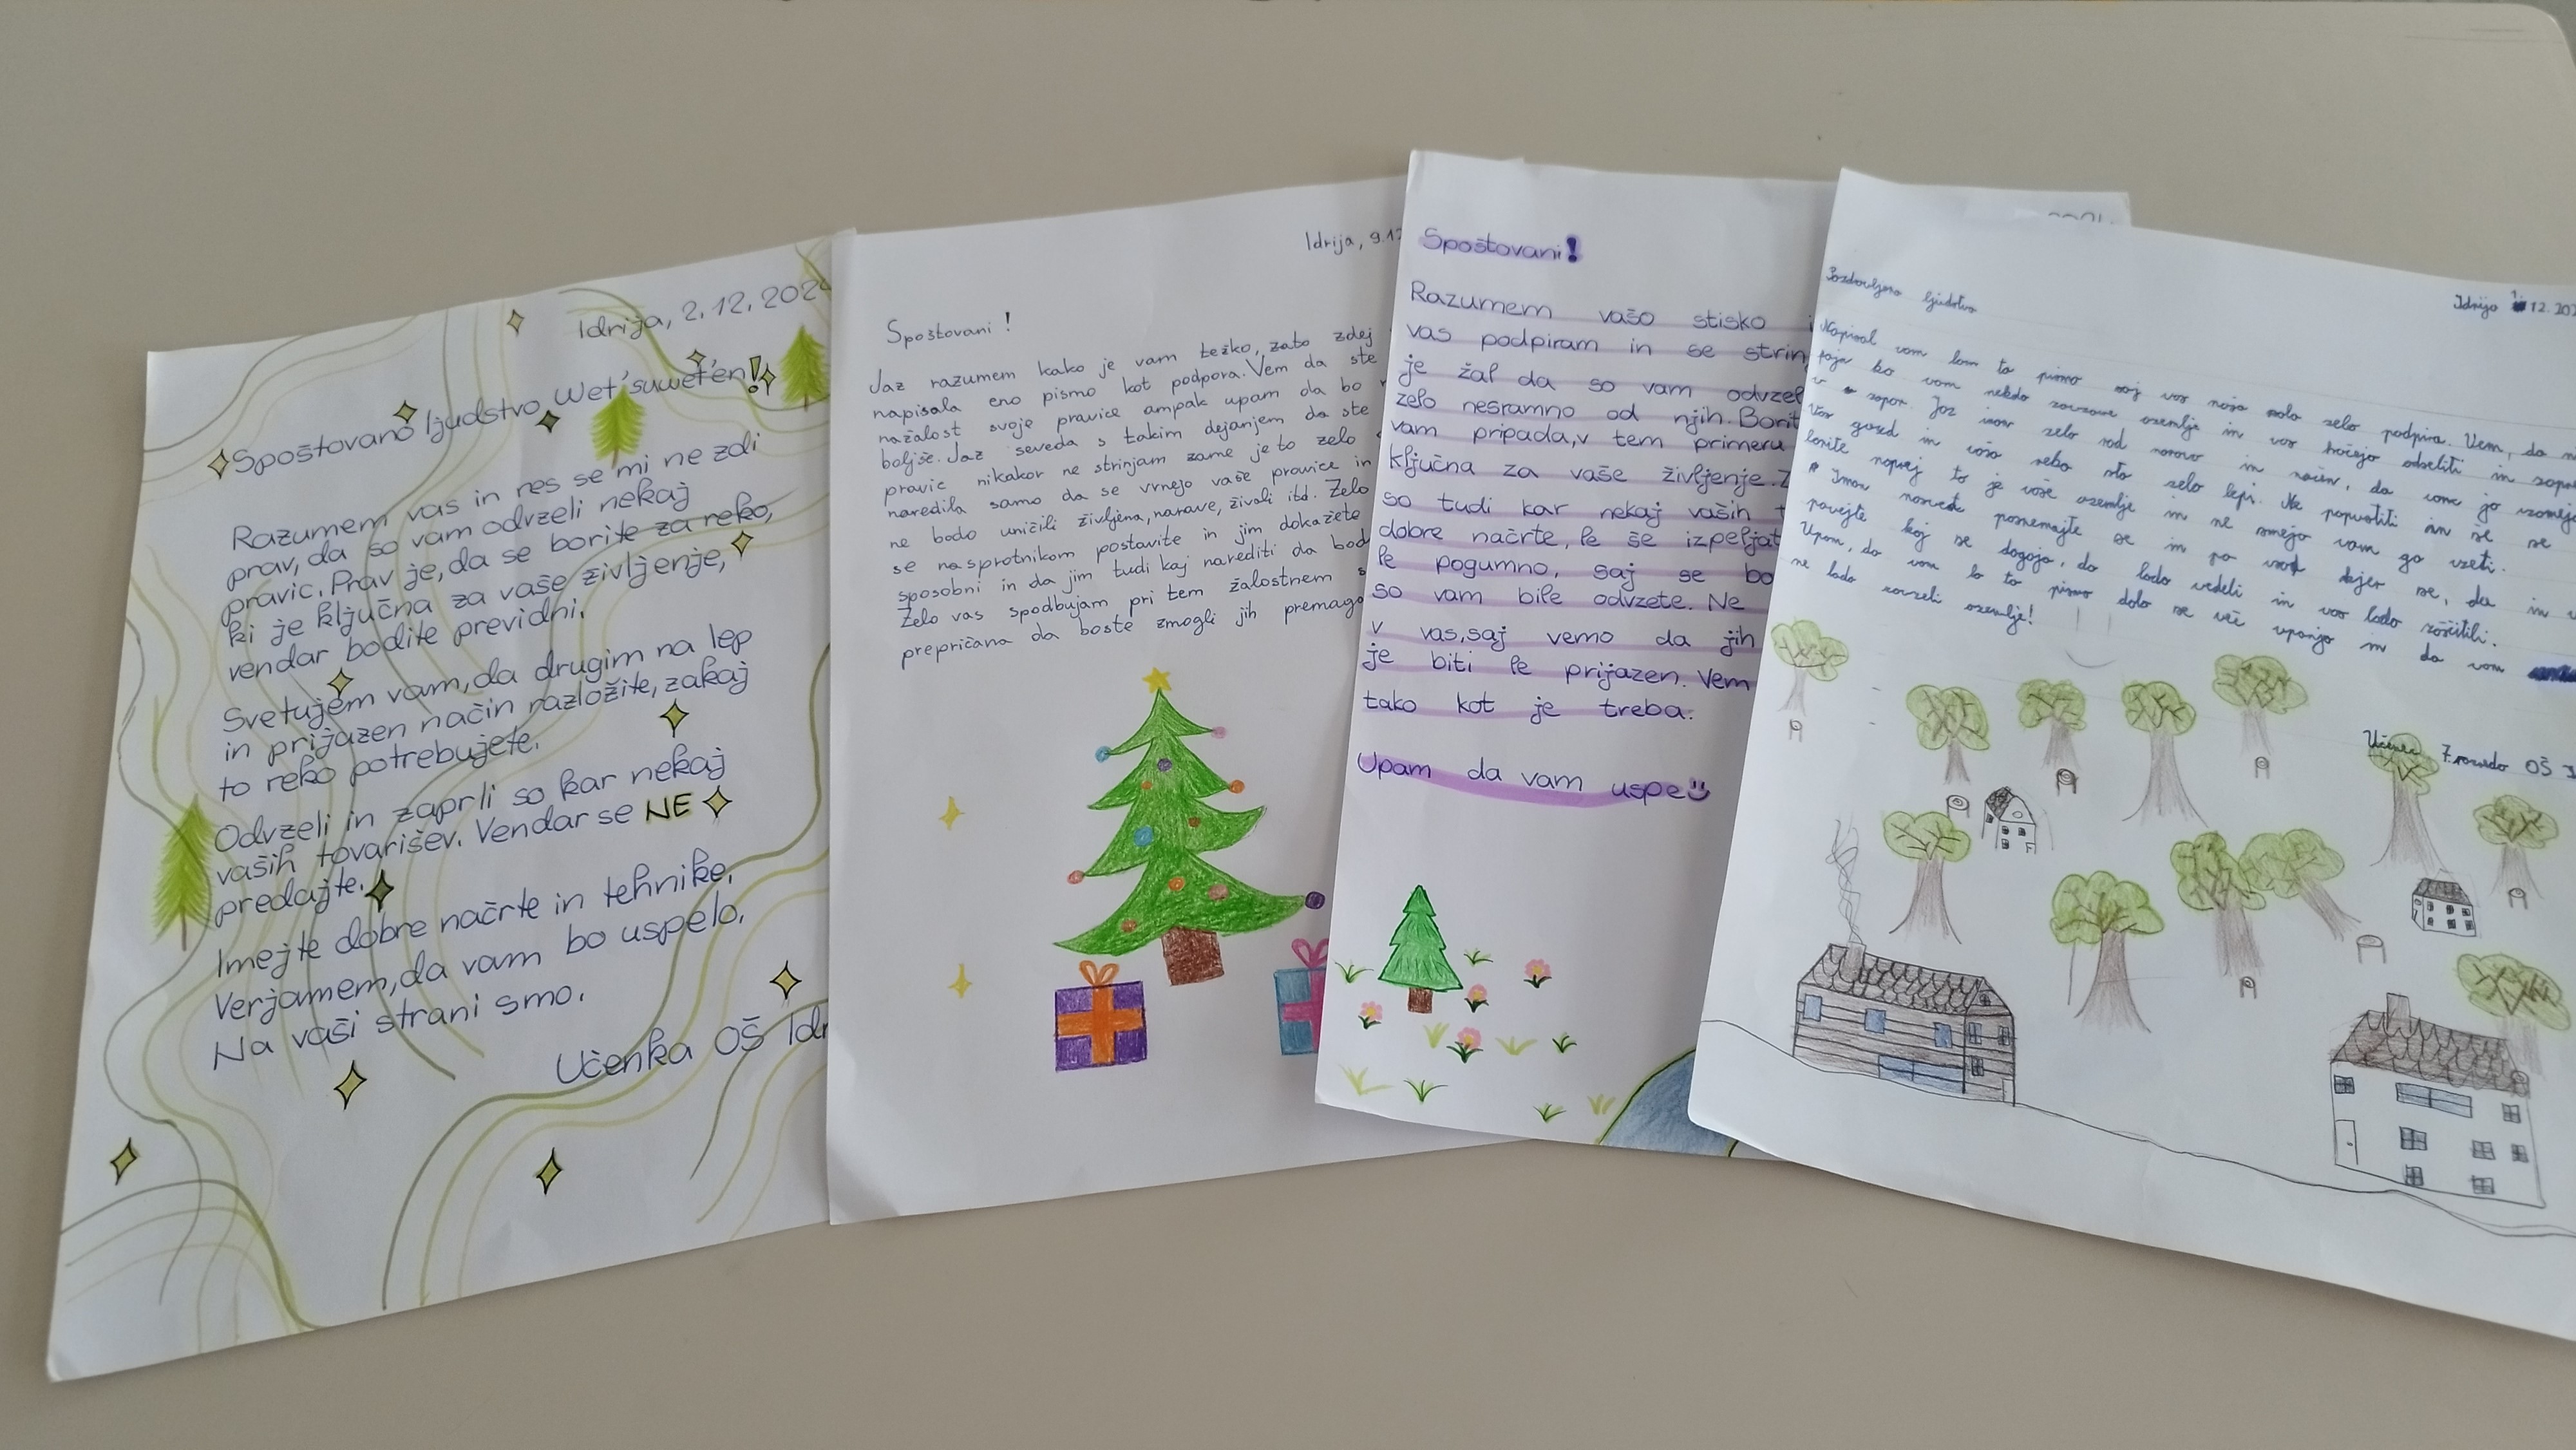 Idrija, 2. 12. 202
Spoštovano ljudstvo Wet'suwet'en!
Razumem vas in res se mi ne zdi
prav, da so vam odvzeli nekaj
pravic. Prav je, da se borite za reko,
ki je ključna za vaše življenje,
vendar bodite previdni.
Svetujem vam, da drugim na lep
in prijazen način razložite, zakaj
to reko potrebujete.
Odvzeli in zaprli so kar nekaj
vaših tovarišev. Vendar se NE
predajte.
Imejte dobre načrte in tehnike.
Verjamem, da vam bo uspelo.
Na vaši strani smo.
Učenka OŠ Idr
Idrija, 9.12
Spoštovani!
Jaz razumem kako je vam težko, zato zdej
napisala eno pismo kot podpora. Vem da ste
nažalost svoje pravice ampak upam da bo
boljše. Jaz seveda s takim dejanjem da ste
pravic nikakor ne strinjam zame je to zelo
naredila samo da se vrnejo vaše pravice in
ne bodo uničili življena, narave, živali itd. Zelo
se nasprotnikom postavite in jim dokažete
sposobni in da jim tudi kaj narediti da bod
Zelo vas spodbujam pri tem žalostnem
prepričana da boste zmogli jih premago
Spoštovani!
Razumem vašo stisko
vas podpiram in se strin
je žal da so vam odvzel
zelo nesramno od njih. Borit
vam pripada, v tem primeru
ključna za vaše življenje. Z
so tudi kar nekaj vaših
dobre načrte, le še izpeljat
le pogumno, saj se bo
so vam bile odvzete. Ne
v vas, saj vemo da jih
je biti le prijazen. Vem
tako kot je treba.
Upam da vam uspe
Idrija 12. 202
Pozdravljeno ljudstvo
Napisal vam bom to pismo saj vas naša šola zelo podpira. Vem, da
ko vam nekdo zavzame ozemlje in vas hočejo odseliti in
v zapor. Jaz imam zelo rad naravo in način, da
Vaš gozd in vaša reka sta zelo lepi. Ne popustiti in še se
borite naprej to je vaše ozemlje in ne smejo vam ga vzeti.
Imam nasvet posnemajte se in po kjer se, da in
povejte kaj se dogaja, da bodo vedeli in vas bodo zaščitili.
Upam, da vam bo to pismo dalo še več upanja in da vam
ne bodo zavzeli ozemlje!
Učenec 7. razreda OŠ